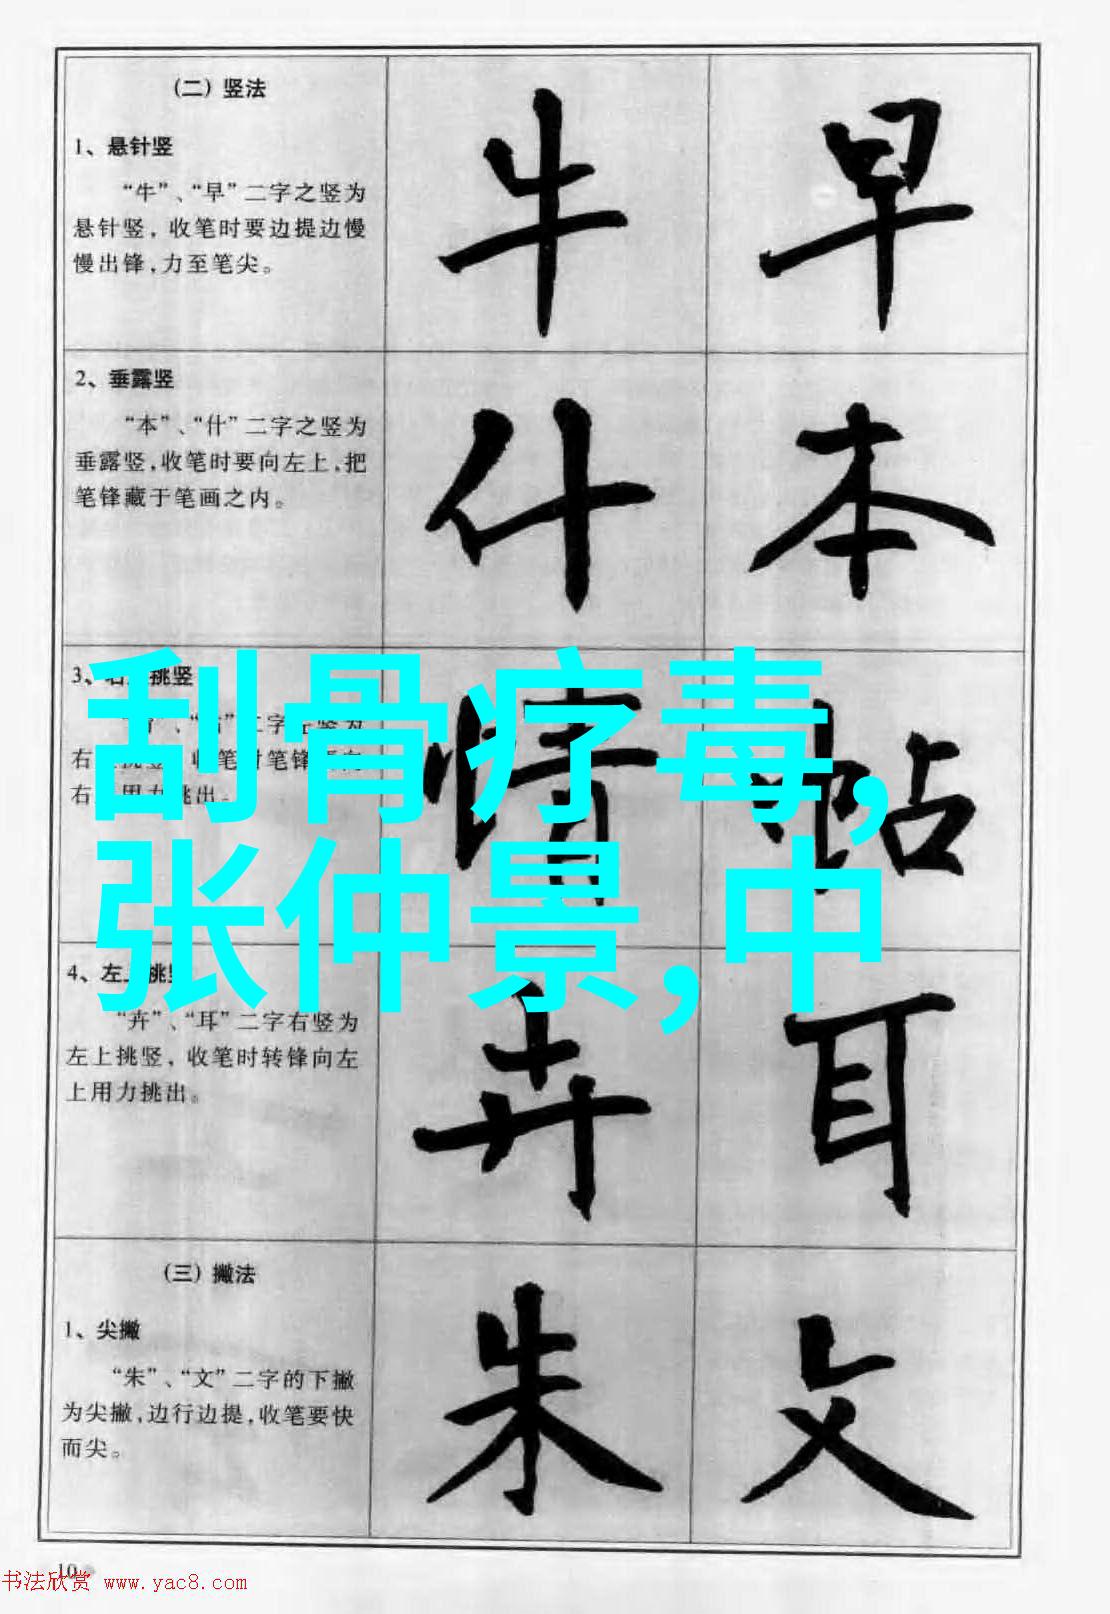 (二) 竖法
1、悬针竖
“牛”、“早”二字之竖为
悬针竖, 收笔时要边提边慢
慢出锋,力至笔尖。
牛 早
2、垂露竖
“本”、“什”二字之竖为
垂露竖,收笔时要向左上,把
笔锋藏于笔画之内。
什 本
3、 挑竖
二字 竖为
右 收笔时笔锋
右 用力挑出。
情 帖
刮骨疗毒,
张仲景,中
4、左上挑竖
“卉”、“耳”二字右竖为
左上挑竖, 收笔时转锋向左
上用力挑出。
卉 耳
(三) 撇法
1、尖撇
“朱”、“文”二字的下撇
为尖撇,边行边提,收笔要快
而尖。
朱 文
10
书法欣赏 www.yac8.com